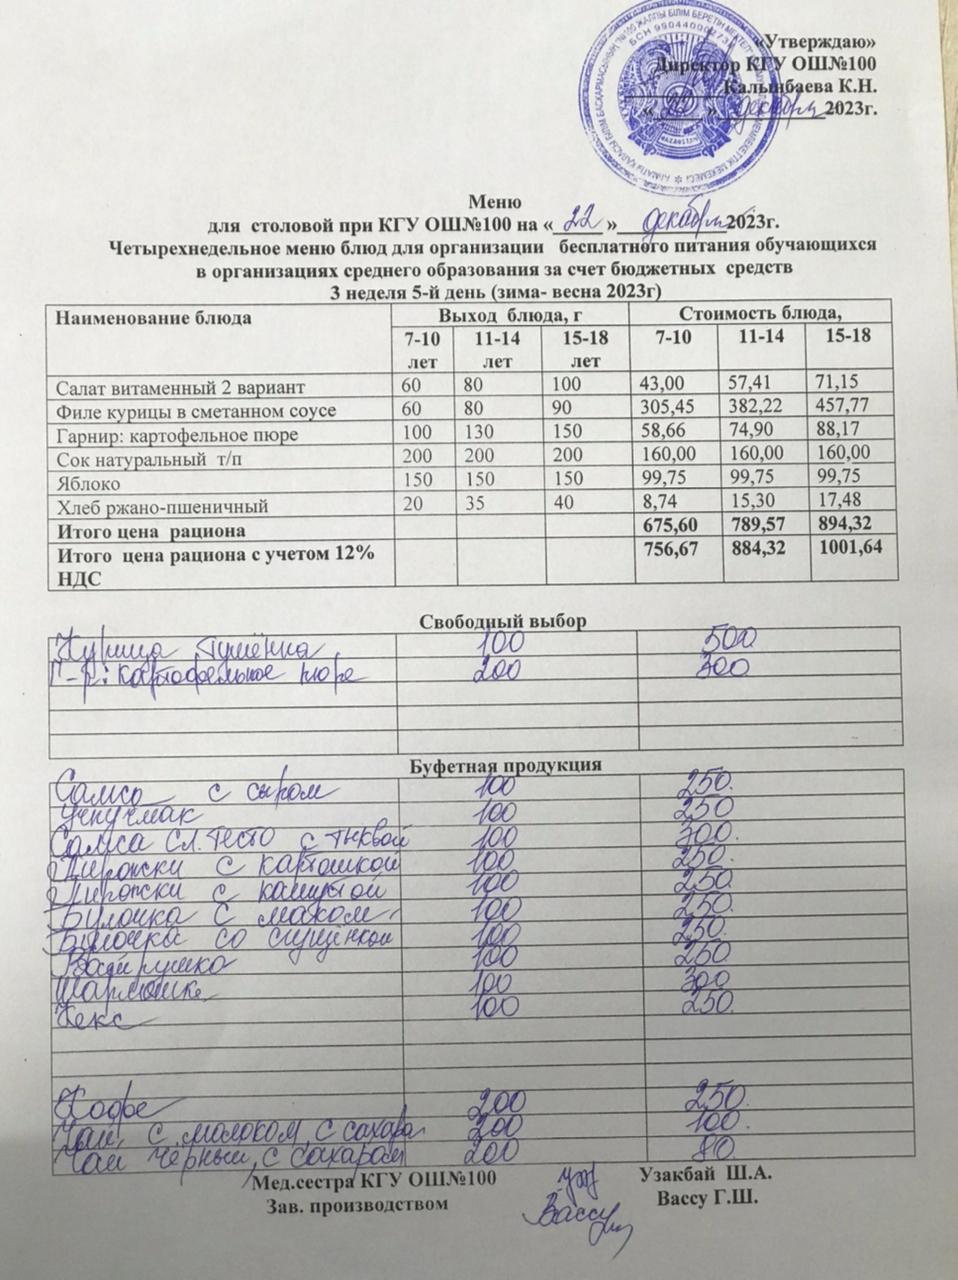 «Утверждаю»
Директор КГУ ОШ№100
Калынбаева К.Н.
« 22 » декабря 2023г.
Меню
для столовой при КГУ ОШ№100 на « 22 » декабря 2023г.
Четырехнедельное меню блюд для организации бесплатного питания обучающихся
в организациях среднего образования за счет бюджетных средств
3 неделя 5-й день (зима- весна 2023г)
Наименование блюда Выход блюда, г Стоимость блюда,
7-10 лет 11-14 лет 15-18 лет 7-10 11-14 15-18
Салат витаменный 2 вариант 60 80 100 43,00 57,41 71,15
Филе курицы в сметанном соусе 60 80 90 305,45 382,22 457,77
Гарнир: картофельное пюре 100 130 150 58,66 74,90 88,17
Сок натуральный т/п 200 200 200 160,00 160,00 160,00
Яблоко 150 150 150 99,75 99,75 99,75
Хлеб ржано-пшеничный 20 35 40 8,74 15,30 17,48
Итого цена рациона 675,60 789,57 894,32
Итого цена рациона с учетом 12% 756,67 884,32 1001,64
НДС
Свободный выбор
Курица тушёнка 100 500
Г-р: картофельное пюре 200 300
Буфетная продукция
Самса с сыром 100 250.
Учпучмак 100 250
Самса сл. тесто с тыквой 100 300.
Пирожки с картошкой 100 250.
Пирожки с капустой 100 250.
Булочка с маком 100 250.
Булочка со сгущёнкой 100 250.
Ватрушка 100 250
100 300
Кекс 100 250.
Кофе 200 250.
Чай с молоком, с сахара 200 100.
Чай черный, с сахаром 200 80.
Мед.сестра КГУ ОШ№100 Узакбай Ш.А.
Зав. производством Вассу Вассу Г.Ш.